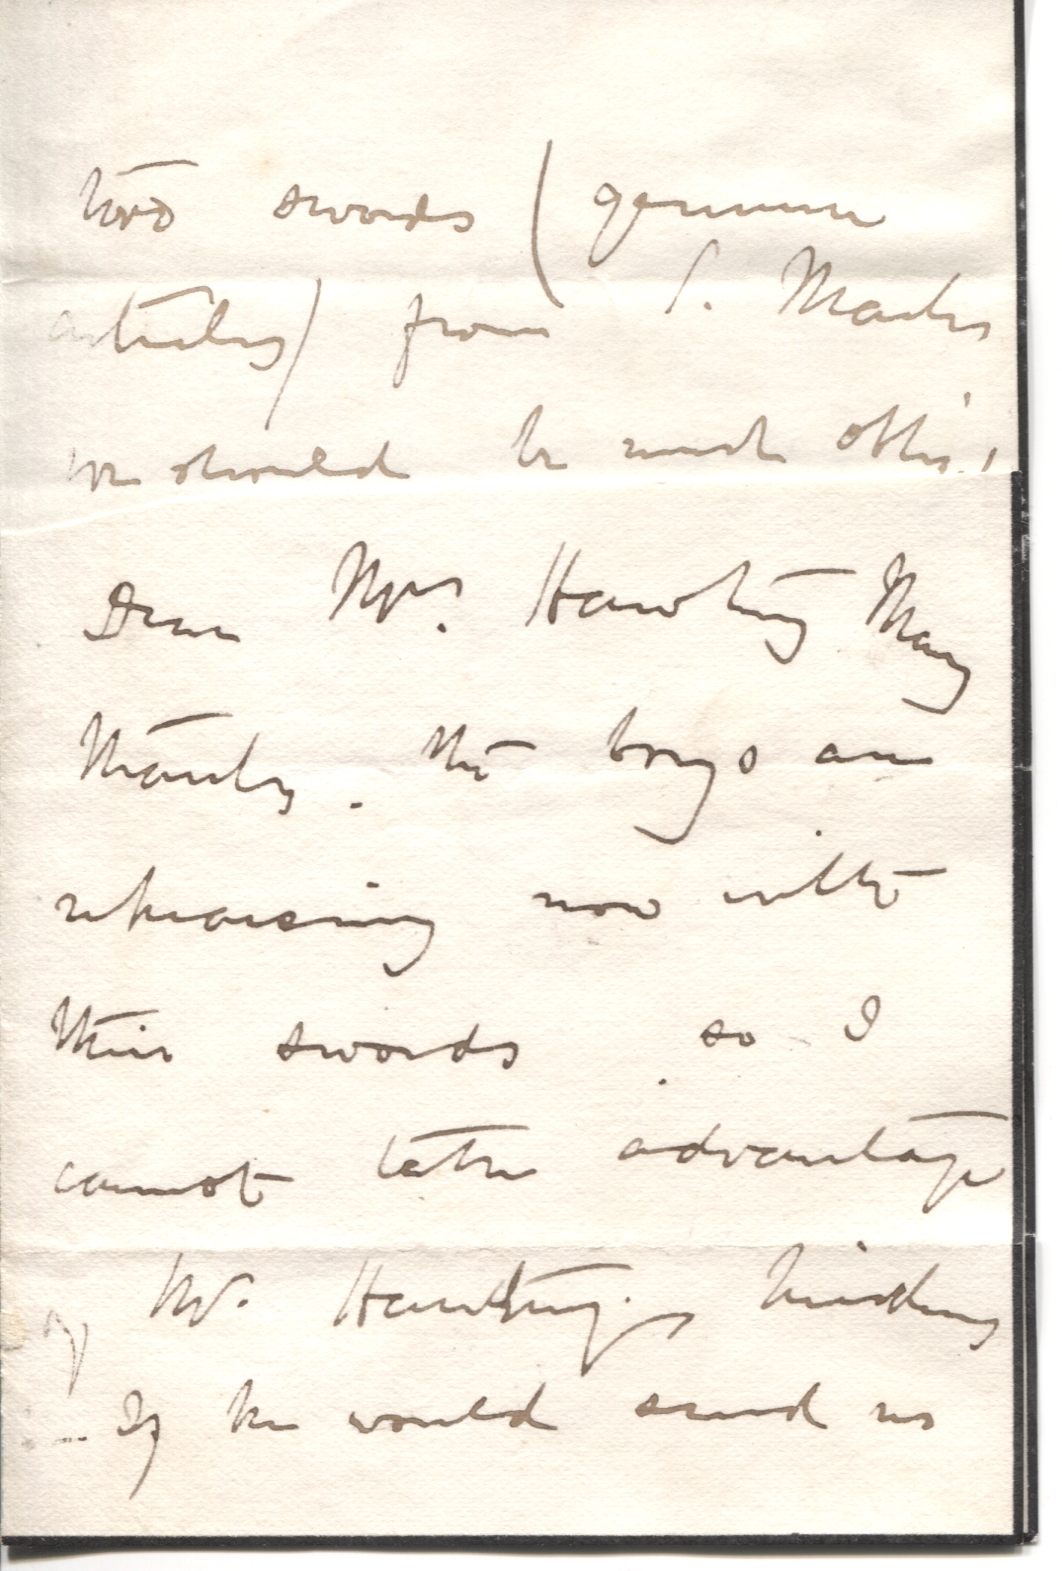 two swords (genuine
articles) from S. Marks
we should be much oblig.
Dear Mrs. Hawting Many
thanks. The boys are
rehearsing now with
their swords so I
cannot take advantage
of Mr. Hawting's kindness
If he would send us